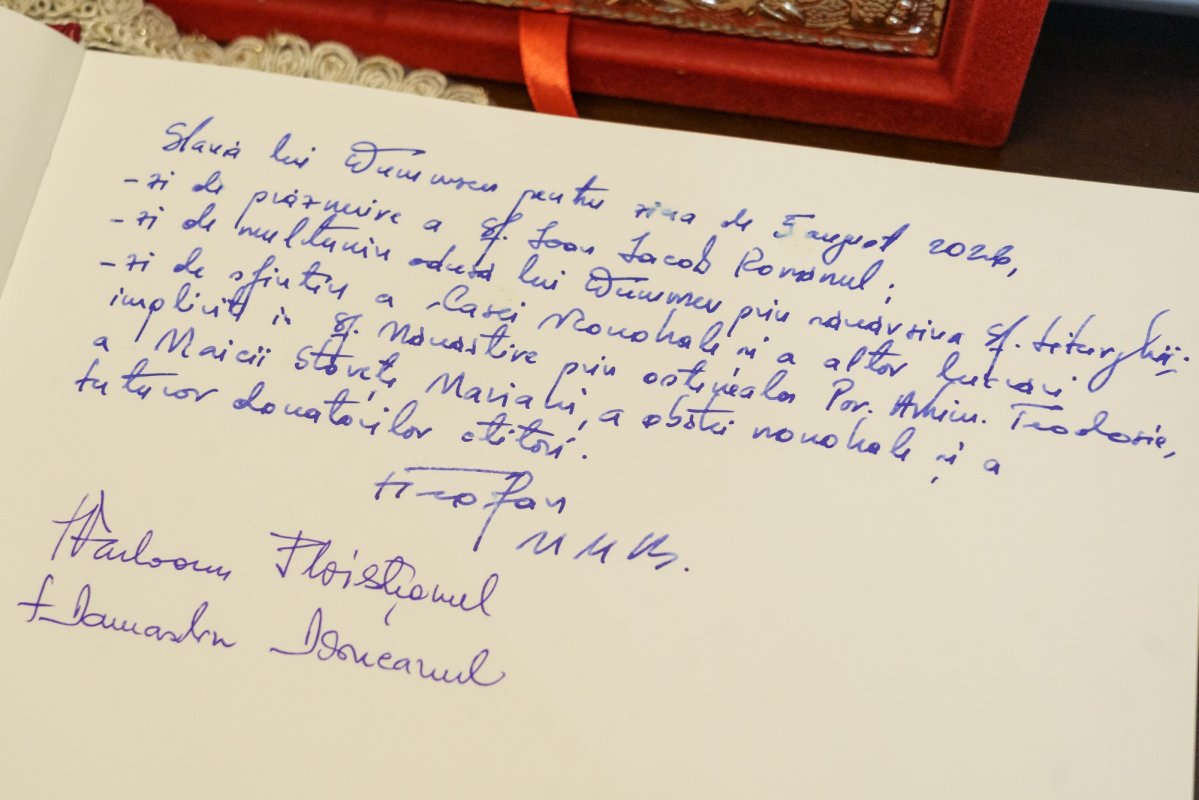 Slavă lui Dumnezeu pentru ziua de 5 august 2026,
- zi de prăznuire a Sf. Ioan Iacob Românul;
- zi de mulțumire adusă lui Dumnezeu prin săvârșirea Sf. Liturghii;
- zi de sfințire a Casei Monahale și a altor lucrări
împlinite în Sf. Mănăstire prin osteneala Păr. Arhim. Teodosie,
a Maicii Starețe Mariani, a obștei monahale și a
tuturor donatorilor ctitori.
† Teofan
MMB.
† Varlaam Ploieșteanul
† Damaschin Dorneanul